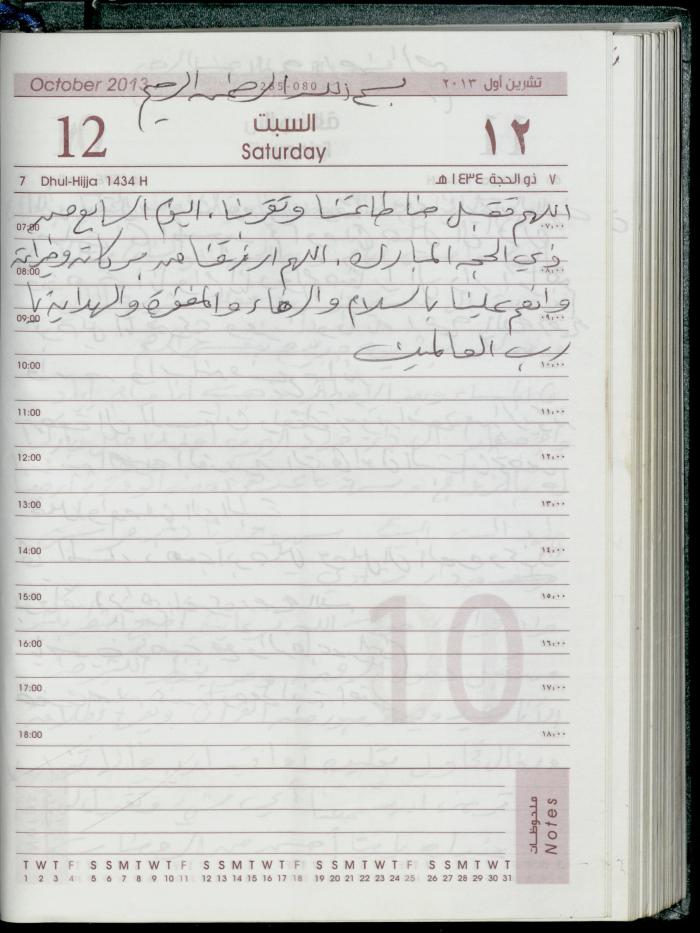 October 2013 285-080 تشرين أول ٢٠١٣
بسم الله الرحمن الرحيم
12 السبت ١٢
Saturday
7 Dhul-Hijja 1434 H ٧ ذو الحجة ١٤٣٤ هـ
اللهم تقبل منا طاعتنا وتقربنا، اليوم السابع من
07:00 ٠٧:٠٠
ذي الحجة المبارك، اللهم ارزقنا من بركاته وخيراته
08:00 ٠٨:٠٠
وانعم علينا بالسلام والرخاء والمغفرة والهداية يا
09:00 ٠٩:٠٠
رب العالمين
10:00 ١٠:٠٠
11:00 ١١:٠٠
12:00 ١٢:٠٠
13:00 ١٣:٠٠
14:00 ١٤:٠٠
15:00 ١٥:٠٠
10
16:00 ١٦:٠٠
17:00 ١٧:٠٠
18:00 ١٨:٠٠
ملحوظات
Notes
T W T F S S M T W T F S S M T W T F S S M T W T F S S M T W T
1 2 3 4 5 6 7 8 9 10 11 12 13 14 15 16 17 18 19 20 21 22 23 24 25 26 27 28 29 30 31